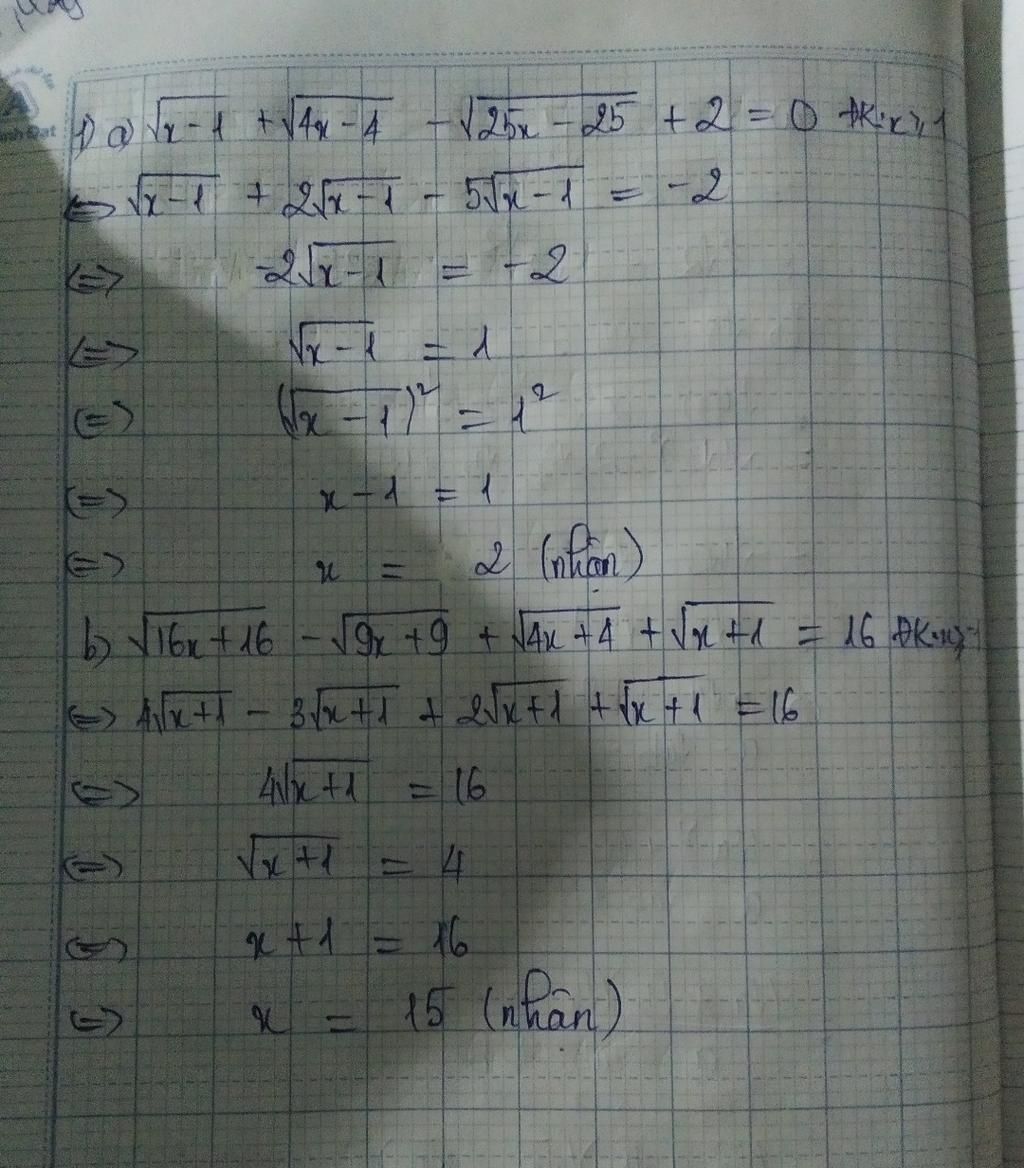 1) a) √(x-1) + √(4x-4) - √(25x-25) + 2 = 0 ĐK: x ≥ 1
⇔ √(x-1) + 2√(x-1) - 5√(x-1) = -2
⇔ -2√(x-1) = -2
⇔ √(x-1) = 1
⇔ (√(x-1))² = 1²
⇔ x-1 = 1
⇔ x = 2 (nhận)
b) √(16x+16) - √(9x+9) + √(4x+4) + √(x+1) = 16 ĐK: x ≥ -1
⇔ 4√(x+1) - 3√(x+1) + 2√(x+1) + √(x+1) = 16
⇔ 4√(x+1) = 16
⇔ √(x+1) = 4
⇔ x+1 = 16
⇔ x = 15 (nhân)